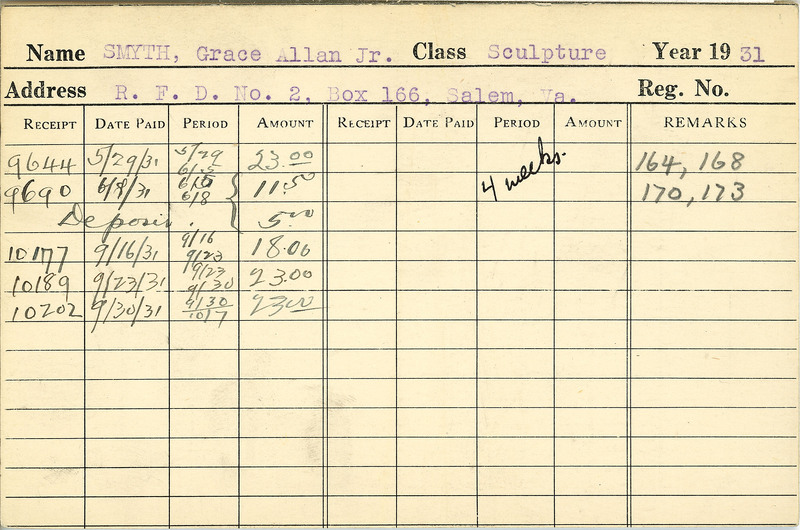 Name SMYTH, Grace Allan Jr. Class Sculpture Year 1931
Address R. F. D. No. 2, Box 166, Salem, Va. Reg. No.
RECEIPT DATE PAID PERIOD AMOUNT RECEIPT DATE PAID PERIOD AMOUNT REMARKS
9644 5/29/31 5/29 23.00 4 weeks. 164, 168
9690 6/8/31 6/8 11.50 170, 173
Deposit. 5.00
10177 9/16/31 9/16 9/23 18.00
10189 9/23/31 9/23 9/30 23.00
10202 9/30/31 9/30 10/7 23.00